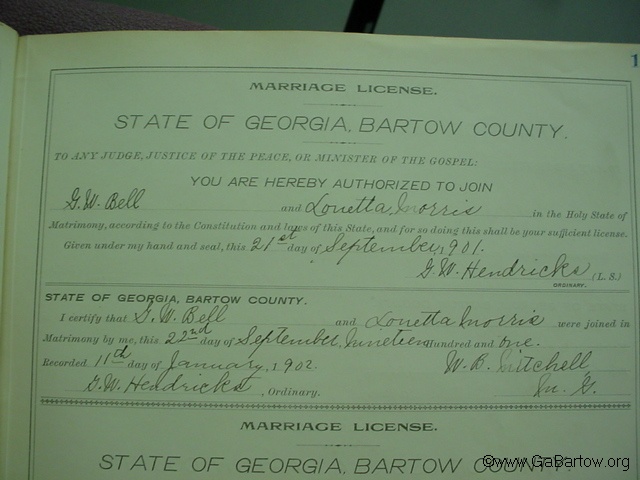 1
MARRIAGE LICENSE.
STATE OF GEORGIA, BARTOW COUNTY.
TO ANY JUDGE, JUSTICE OF THE PEACE, OR MINISTER OF THE GOSPEL:
YOU ARE HEREBY AUTHORIZED TO JOIN
G. W. Bell and Lonetta Morris in the Holy State of
Matrimony, according to the Constitution and laws of this State, and for so doing this shall be your sufficient license.
Given under my hand and seal, this 21st day of September, 1901.
G. W. Hendricks (L. S.)
ORDINARY.
STATE OF GEORGIA, BARTOW COUNTY.
I certify that G. W. Bell and Lonetta Morris were joined in
Matrimony by me, this 22nd day of September, Nineteen Hundred and one.
Recorded 11th day of January, 1902. W. B. Mitchell
G. W. Hendricks, Ordinary. M. G.
MARRIAGE LICENSE.
STATE OF GEORGIA, BARTOW COUNTY.
©www.GaBartow.org